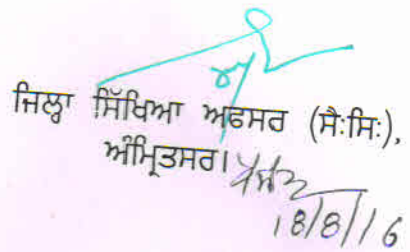 ਜਿਲ੍ਹਾ ਸਿੱਖਿਆ ਅਫਸਰ (ਸੈ:ਸਿ:),
ਅੰਮ੍ਰਿਤਸਰ।
18/8/16